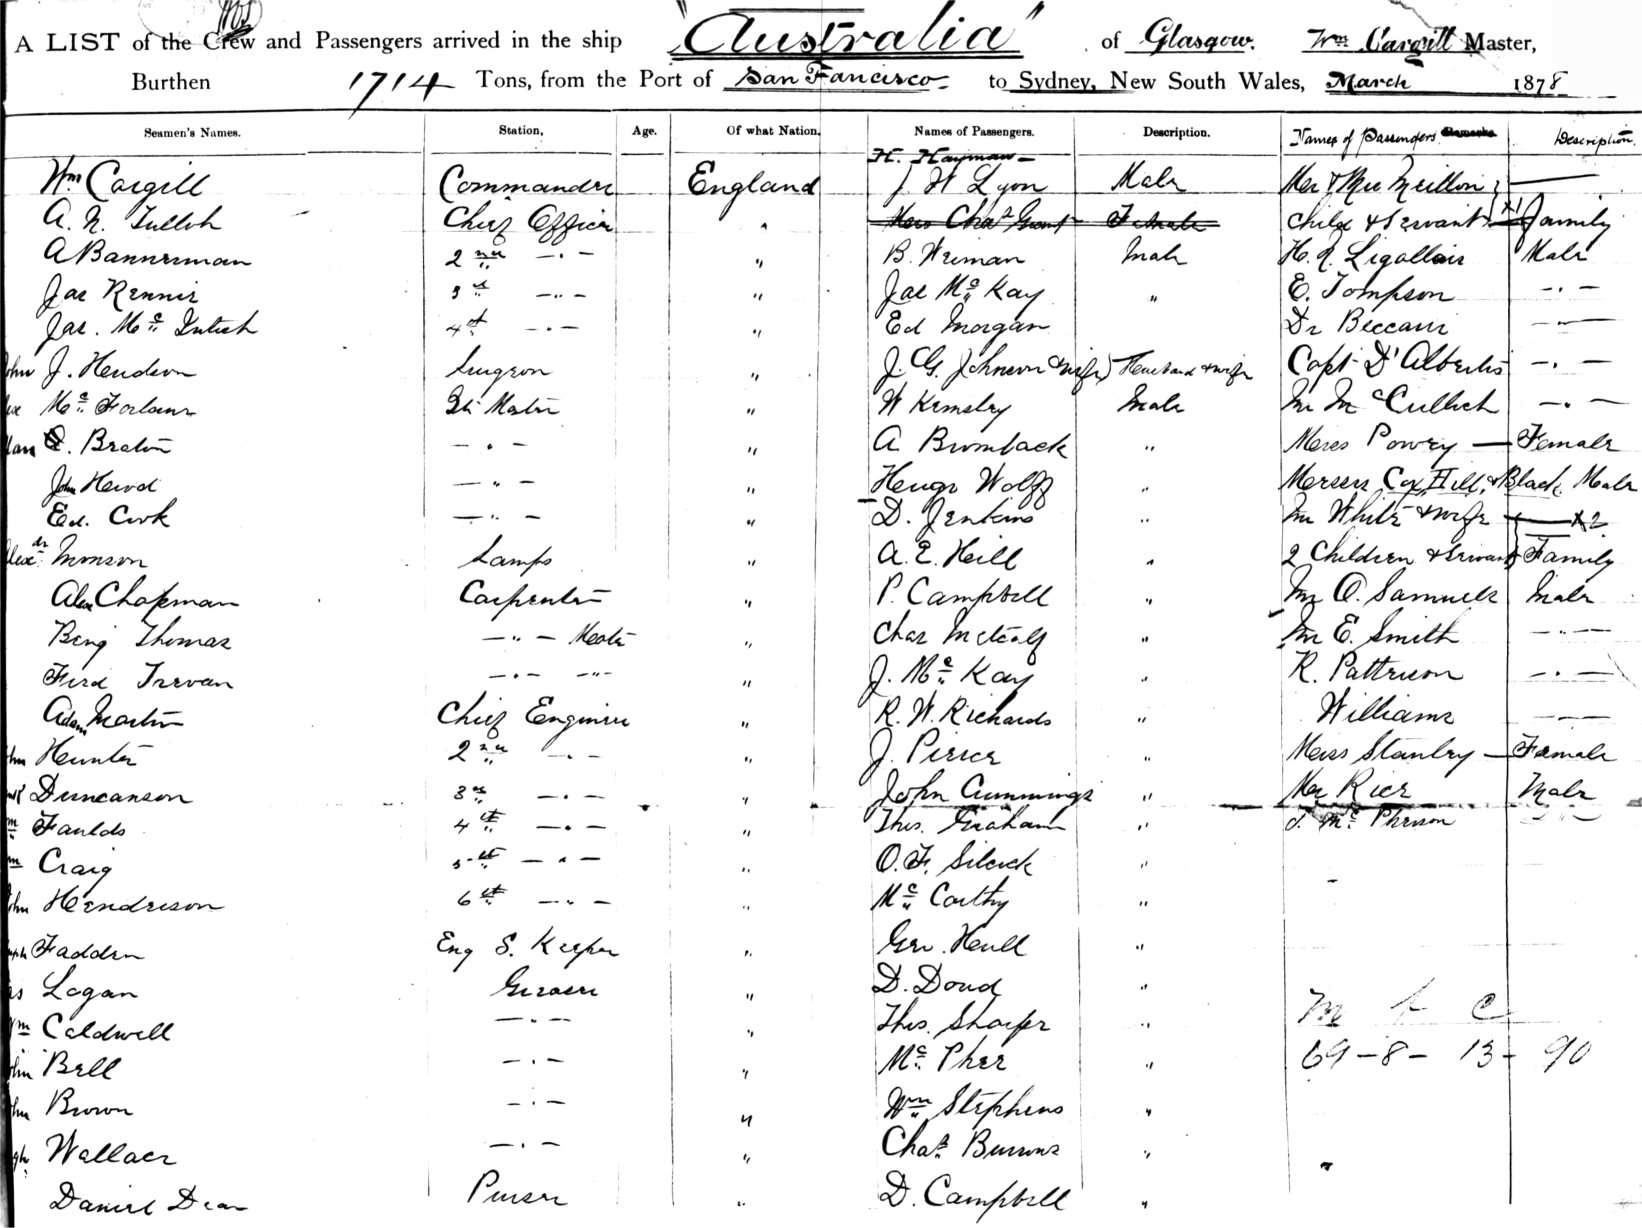 A LIST of the Crew and Passengers arrived in the ship "Australia" of Glasgow. Wm Cargill Master,
Burthen 1714 Tons, from the Port of San Fancisco to Sydney, New South Wales, March 1878
Seamen's Names. Station, Age. Of what Nation. Names of Passengers. Description. Names of Passengers Description.
H. Hayman
Wm Cargill Commander England J W Lyon Male Mr & Mrs Meillon
A. N. Tulloh Chief Officer " Mrs Chas Grant Female Child & Servant x1 Family
A Bannerman 2nd — " — " B. Weiman Male H. Q. Ligallair Male
Jas Rennie 3rd — " — " Jas Mc Kay " E. Tompson — " —
Jas. Mc Intosh 4th — " — " Ed Morgan Dr Beccari — " —
John J. Henderson Surgeon " J. G. Johnson & wife Husband & wife Capt D'Albertis — " —
Mc Farlane Qr Master " W Kemsley Male Mr McCulloch — " —
Braton — " — " A Bromback " Miss Povey — Female
John Hewod — " — " Henry Wolff " Messrs Cox, Hill, & Black Male
Ed. Cook — " — " D. Jenkins " Mr White & wife x2
Alexdr Monson Lamps " A. E. Heill " 2 Children & Servant Family
Alex Chapman Carpenter " P. Campbell " Mr O. Samuels Male
Benj Thomas — " — Mate " Chas Metcalf " Mr E. Smith — " —
Ferd Trevan — " — — " — " J. Mc Kay " R. Patterson — " —
Adam Martin Chief Engineer " R. W. Richards " Williams — " —
John Hunter 2nd — " — " J. Pierce " Miss Stanley — Female
Duncanson 3rd — " — " John Cummings " Mr Rice Male
Wm Faulds 4th — " — " Thos. Graham " J. Mc Pherson — " —
Wm Craig 5th — " — " O. F. Silcock "
John Henderson 6th — " — " Mc Carthy "
Joseph Fadden Eng S. Keeper " Geo. Hull "
Logan Greaser " D. Doud "
Wm Caldwell — " — " Thos. Sharper " M A C
John Bell — " — " Mc Pher " 69 - 8 - 13 - 90
John Brown — " — " Wm Stephens "
Hugh Wallace — " — " Chas. Burrows "
Daniel Dear Purser " D. Campbell "